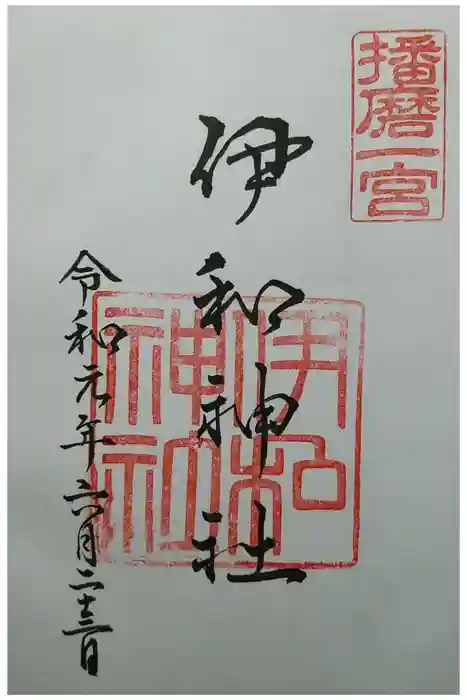 播磨一宮
伊和神社
伊和
神社
令和元年六月二十三日